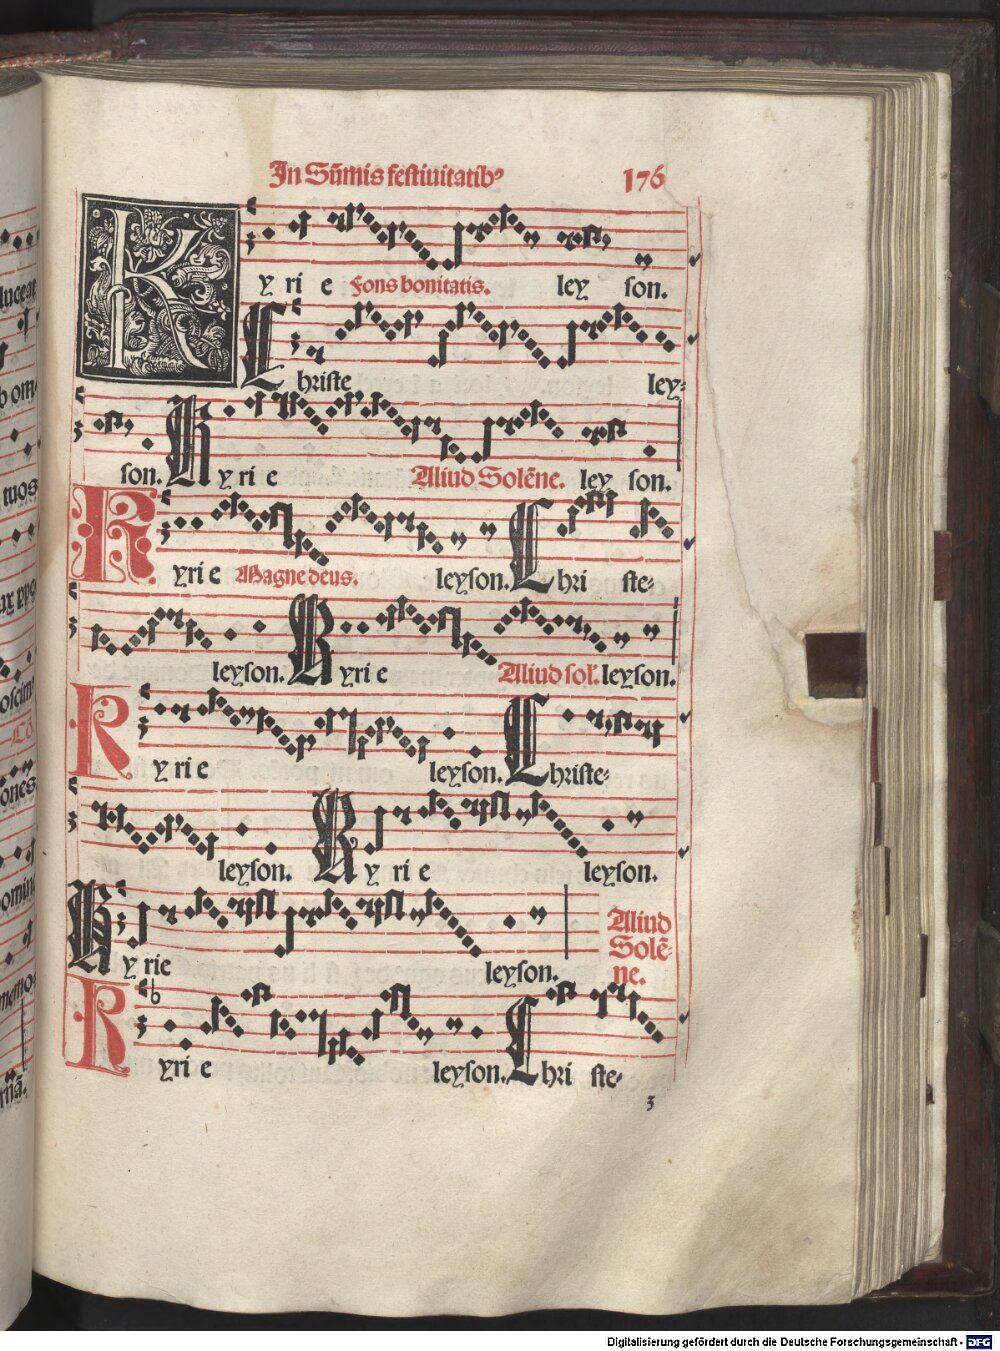 In Sūmis festiuitatibꝰ 176
Kyrie Fons bonitatis. ley son.
Christe ley-
son. Kyrie Aliud Solēne. ley son.
Kyrie Magne deus. leyson. Chri ste-
leyson. Kyrie Aliud sol. leyson.
Kyrie leyson. Christe-
leyson. Kyrie leyson.
Kyrie leyson. Aliud
Solē-
ne.
Kyrie leyson. Christe-
3
Digitalisierung gefördert durch die Deutsche Forschungsgemeinschaft - DFG